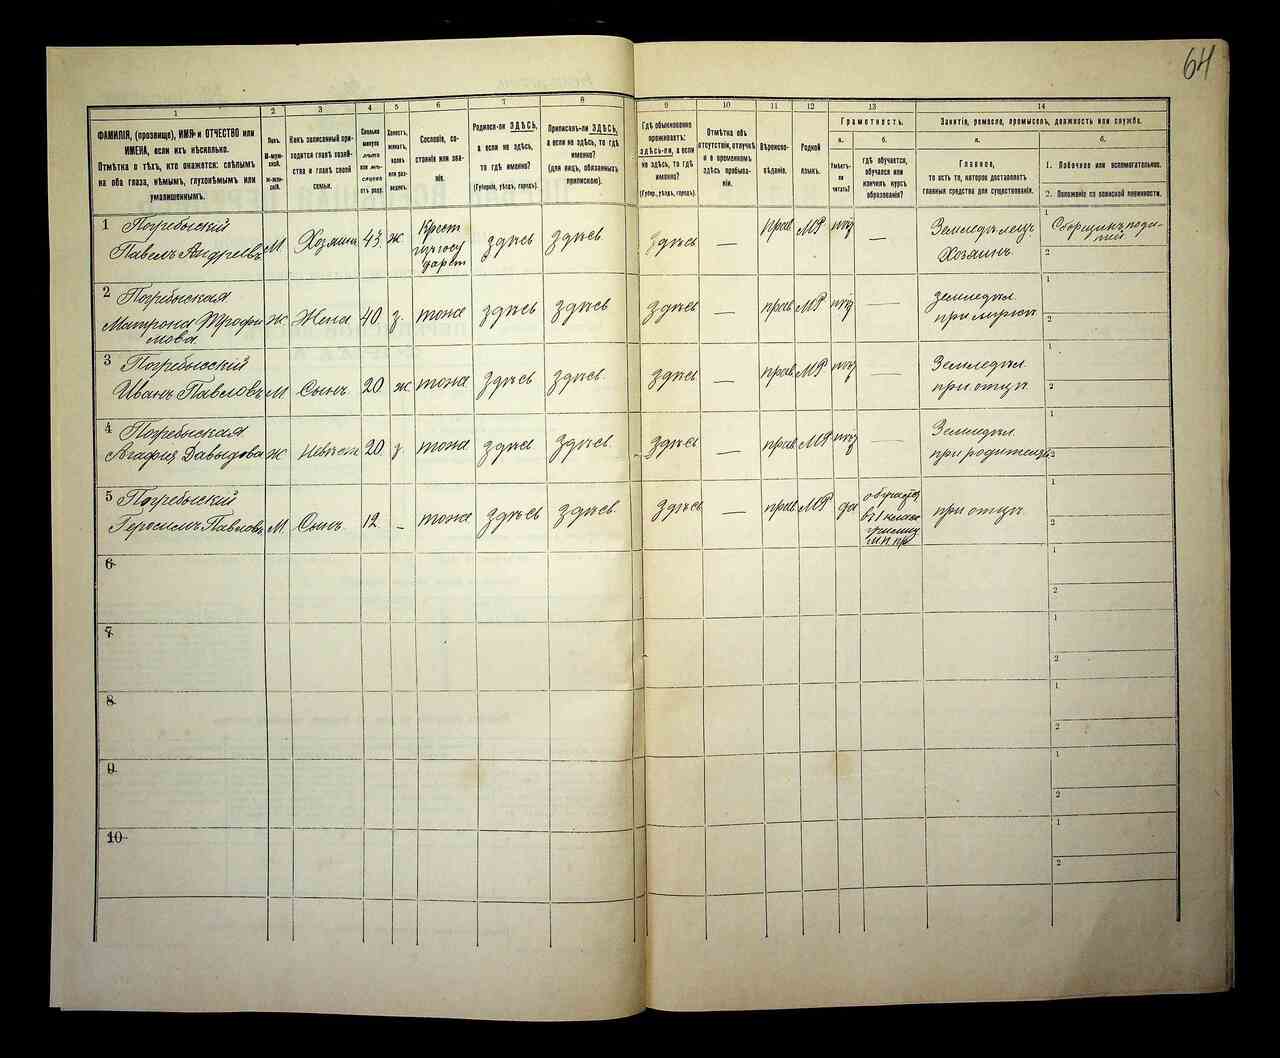 64
1
2
3
4
5
6
7
8
9
10
11
12
13
14
ФАМИЛІЯ, (прозвище), ИМЯ и ОТЧЕСТВО или
ИМЕНА, если ихъ нѣсколько.
Отмѣтка о тѣхъ, кто окажется: слѣпымъ
на оба глаза, нѣмымъ, глухонѣмымъ или
умалишеннымъ.
Полъ.
М-муж-
ской.
Ж-жен-
скій.
Какъ записанный при-
ходится главѣ хозяй-
ства и главѣ своей
семьи.
Сколько
минуло
лѣтъ
или мѣ-
сяцевъ
отъ роду.
Холостъ,
женатъ,
вдовъ
или раз-
веденъ.
Сословіе, со-
стояніе или зва-
ніе.
Родился-ли ЗДѢСЬ,
а если не здѣсь,
то гдѣ именно?
(Губернія, уѣздъ, городъ).
Приписанъ-ли ЗДѢСЬ,
а если не здѣсь, то гдѣ
именно?
(для лицъ, обязанныхъ
припискою).
Гдѣ обыкновенно
проживаетъ:
здѣсь-ли, а если
не здѣсь, то гдѣ
именно?
(Губер., уѣздъ, городъ).
Отмѣтка объ
отсутствіи, отлучкѣ
и о временномъ
здѣсь пребыва-
ніи.
Вѣроиспо-
вѣданіе.
Родной
языкъ.
Грамотность.
а.
Умѣетъ-
ли
читать?
б.
гдѣ обучается,
обучался или
кончилъ курсъ
образованія?
Занятіе, ремесло, промыселъ, должность или служба.
а.
Главное,
то есть то, которое доставляетъ
главныя средства для существованія.
б.
1. Побочное или вспомогательное.
2. Положеніе по воинской повинности.
1 Погребыскій
Павелъ Андреевъ М Хозяинъ 43 ж Крест здѣсь здѣсь здѣсь — прав МР — Земледѣлецъ Хозяинъ 1 Сборщикъ пода-
2
2 Погребыская
Матрона Трофи
мова Ж Жена 40 з. тоже здѣсь здѣсь здѣсь — прав МР — земледѣл. при мужѣ 1
2
3 Погребыскій
Иванъ Павловъ М Сынъ 20 ж тоже здѣсь здѣсь здѣсь — прав МР — Земледѣл. при отцѣ 1
2
4 Погребыская
Агафія Давыдова Ж Невѣст 20 з. тоже здѣсь здѣсь здѣсь — прав МР — Земледѣл. при родителѣ 1
2
5 Погребыскій
Герасимъ Павловъ М. Сынъ 12 — тоже здѣсь здѣсь здѣсь — прав МР да обучается при отцѣ 1
2
6 1
2
7 1
2
8 1
2
9 1
2
10 1
2